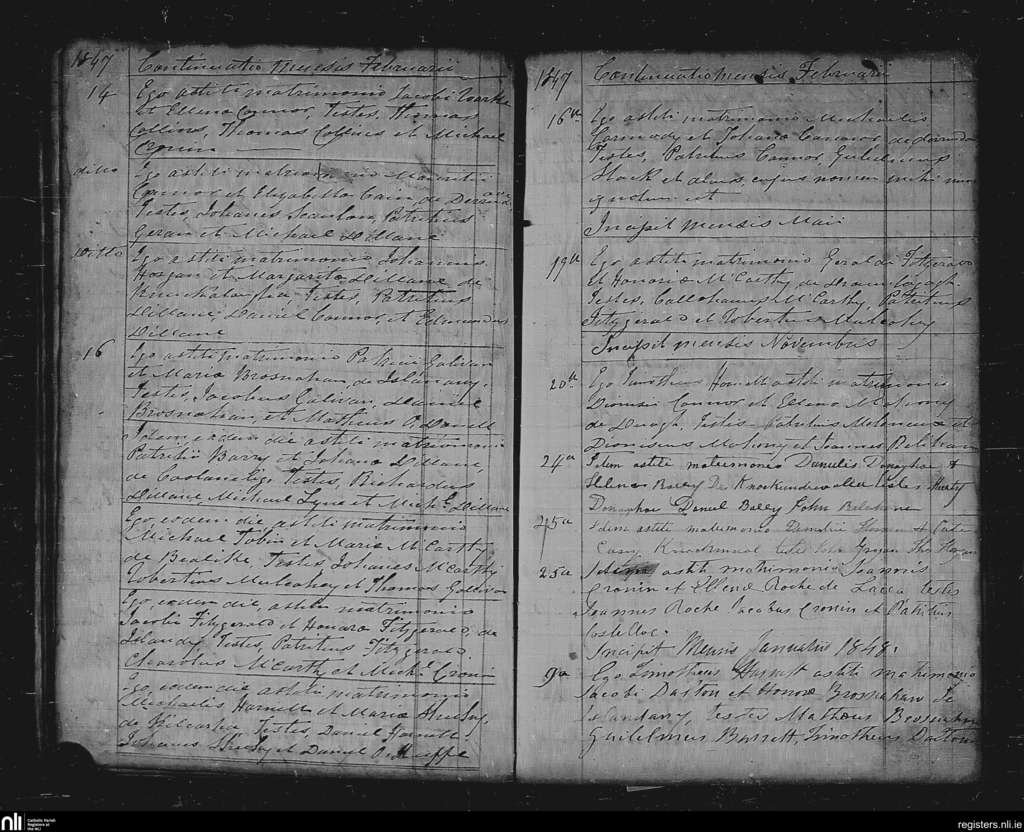 1847 Continuatio mensis Februarii
14 Ego astiti matrimonio Jacobi
et Ellena Connor, Testes, Thomas
Collins, Thomas Collins et Michael
Cronin
ditto Ego astiti matrimonio Mauritii
Connor et Elizabetha Cain, de
Testes, Johanes Scanlon, Patritius
Geran et Michael Dillane
Ditto Ego astiti matrimonio Johannis
Hogan et Margarita Dillane de
Testes, Patritius
Dillane, Daniel Connor, et Edmundus
Dillane
16 Ego astiti matrimonio Patricii Galivan
et Maria Brosnahan, de Islanany,
Testes, Jacobus Galivan, Daniel
Brosnahan, et Mathius O'Donell
Idem eodem die astiti matrimonio
Patritii Barry et Johana Dillane,
de Testes, Richardus
Dillane Michael Lyns et Michl Dillane
Ego, eodem die astiti matrimonio
Michael Tobin et Maria McCarthy
de Testes, Johanes McCarthy
Robertus Mulcahy et Thomas Galivan
Ego, eodem die, astiti matrimonio
Jacobi Fitzgerald et Honora Fitzgerald, de
Testes, Patritius Fitzgerald
Charolus McCarthy et Michl Cronin
Ego, eodem die astiti matrimonio
Michaelis Harnett et Maria Sheehy,
de Testes, Daniel Harnett
Johanes Sheehy et Daniel O'Keeffe
1847 Continuatio mensis Februarii
16th Ego astiti matrimonio Michaelis
Carmody et Johana Connor, de
Testes, Patritius Connor, Gulielmus
Stack et alius cujus nomen mihi
ignotum est
Incipit mensis Maii
19th Ego astiti matrimonio Geraldi Fitzgerald
et Honoria McCarthy, de
Testes, Callahanus McCarthy, Patritius
Fitzgerald et Robertus Mulcahy
Incipit mensis Novembris
20th Ego Timotheus Harnett astiti matrimonio
Dionisii Connor et Ellena Mahony
de Duagh, Testes Patritius et
Dionisius Mahony et Joannes Relehan
24a Idem astiti matrimonio Danielis Donaghoe &
Ellena Baley De Knockundervalla testes
Donaghoe Daniel Baley John Relehane
25a Idem astiti matrimonio &
Casey
25a Idem astiti matrimonio Joannis
Cronin et Ellena Roche de Lacca testes
Joannes Roche Jacobus Cronin et Patritius
Costelloe.
Incipit Mensis Januarii 1848.
9a Ego Timotheus Harnett astiti matrimonio
Jacobi Dalton et Honora Brosnahan De
Islanany, testes Matheus Brosnahan
Guilelmus Barrett, Timotheus Dalton
nli Catholic Parish
Registers at
the NLI
registers.nli.ie